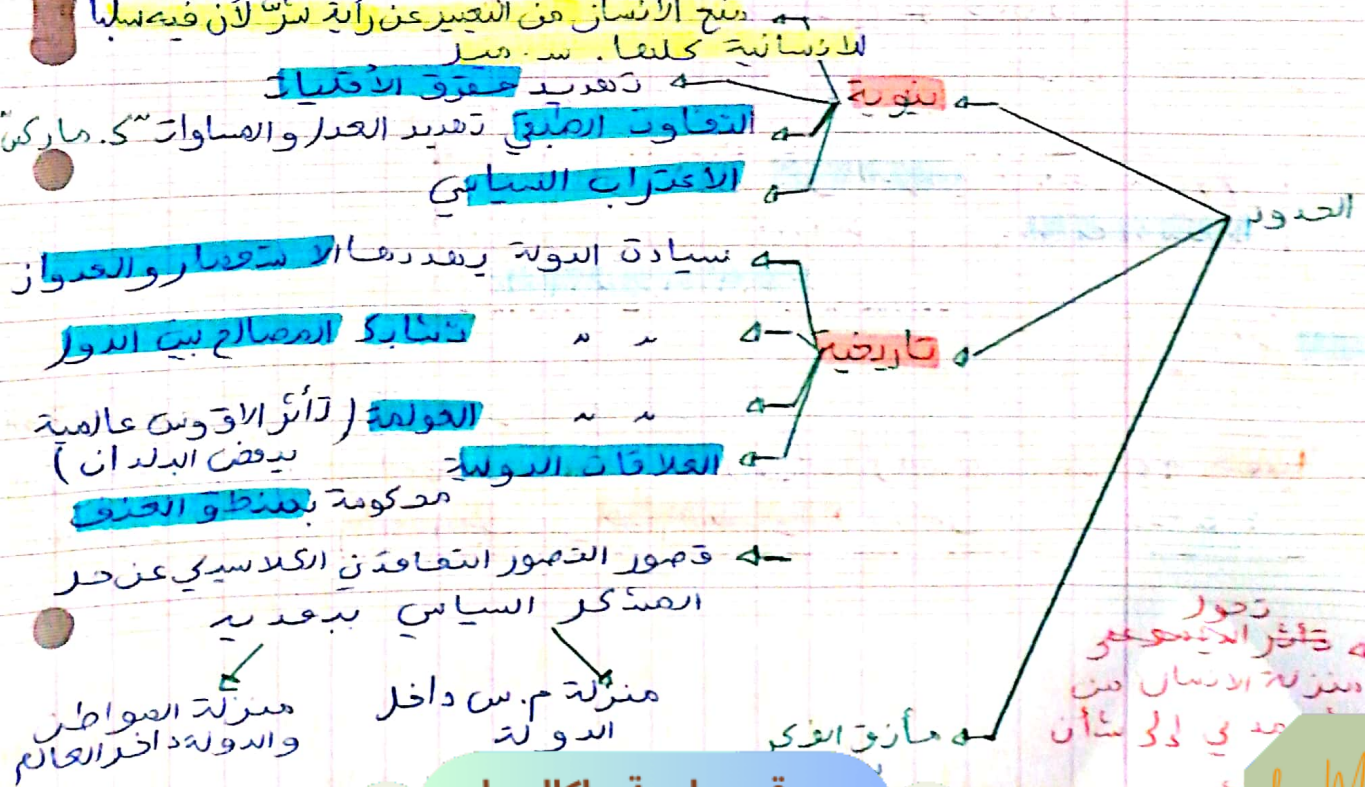 منع الانسان من التعبير عن رأيه شرّ لأن فيه سلبا
للانسانية كلها. س. ميل
بنيوية
تهديد حقوق الأقليات
التفاوت الطبقي تهديد العدل والمساوات "ك. ماركس"
الاغتراب السياسي
الحدود
سيادة الدولة يهددها الاستعمار والعدوان
تاريخية
" " تشابك المصالح بين الدول
" " العولمة (تأثر الاقوس عالمية
ببعض البلدان)
العلاقات الدولية
محكومة بمنطق العنف
قصور التصور التعاقدي الكلاسيكي عن حل
المشكل السياسي ببعديه
منزلة م.س داخل
الدولة
منزلة المواطن
والدولة داخل العالم
مأزق
تحول
منزلة الانسان من
إلى شأن